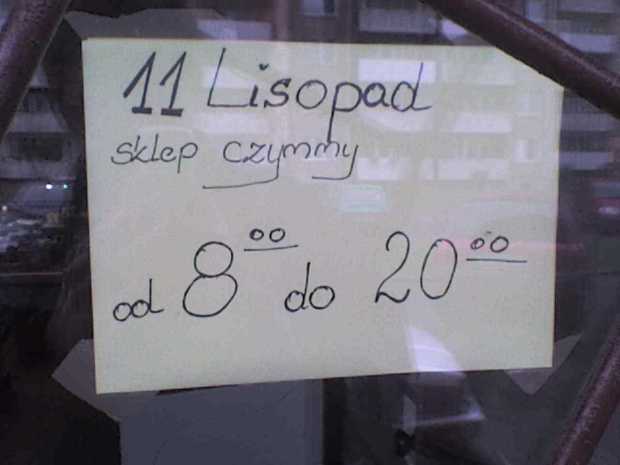 11 Lisopad
sklep czymmy
od 8⁰⁰ do 20⁰⁰